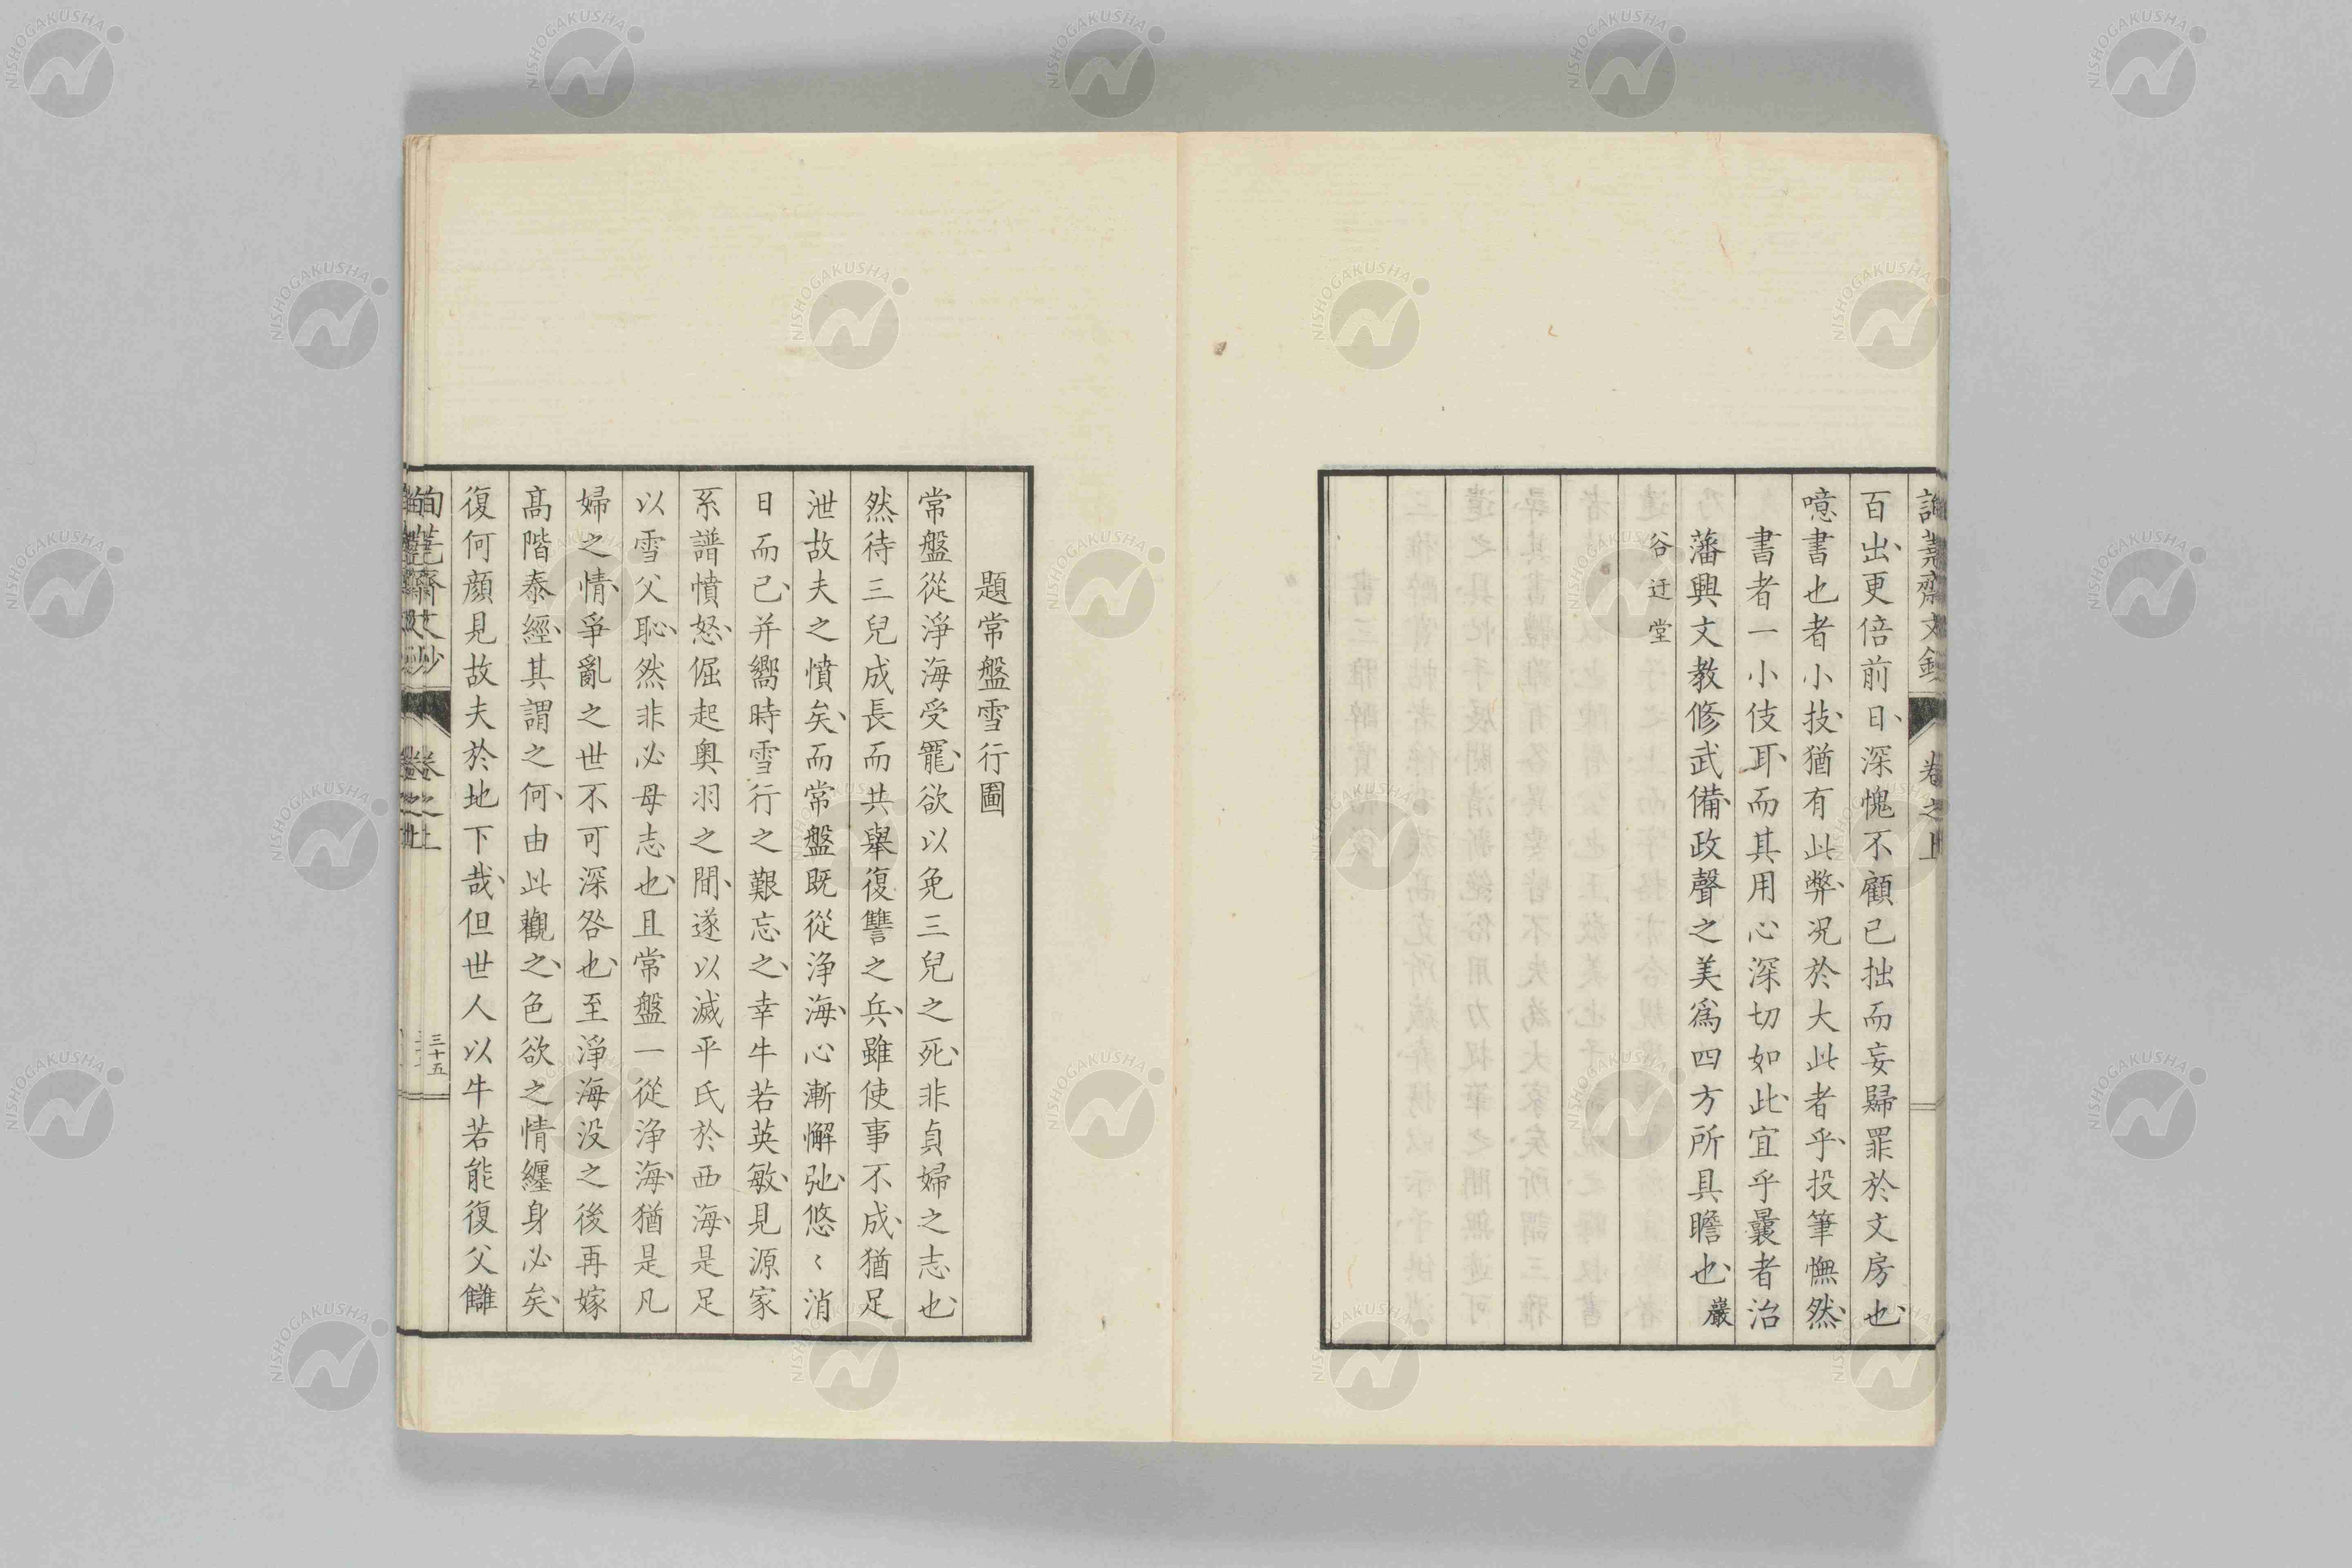 百出、更倍前日、深愧不顧已拙而妄歸罪於文房也、
噫書也者小技、猶有此弊、况於大此者乎、投筆憮然、
書者一小伎耳、而其用心深切如此、宜乎曩者治
藩興文教修武備、政聲之美爲四方所具瞻也、巖
谷迂堂
題常盤雪行圖
常盤從淨海受寵、欲以免三兒之死、非貞婦之志也、
然待三兒成長而共舉復讐之兵、雖使事不成、猶足
泄故夫之憤矣、而常盤既從淨海、心漸懈弛、悠〻消
日而已、并嚮時雪行之艱忘之、幸牛若英敏、見源家
系譜憤怒、倔起奧羽之間、遂以滅平氏於西海、是足
以雪父恥、然非必母志也、且常盤一從淨海、猶是凡
婦之情、爭亂之世不可深咎也、至淨海没之後再嫁
高階泰經、其謂之何、由此觀之、色欲之情纏身必矣、
復何顏見故夫於地下哉、但世人以牛若能復父讎
文鈔
卷之上
三十五
齋文鈔
卷之上
NISHOGAKUSHA